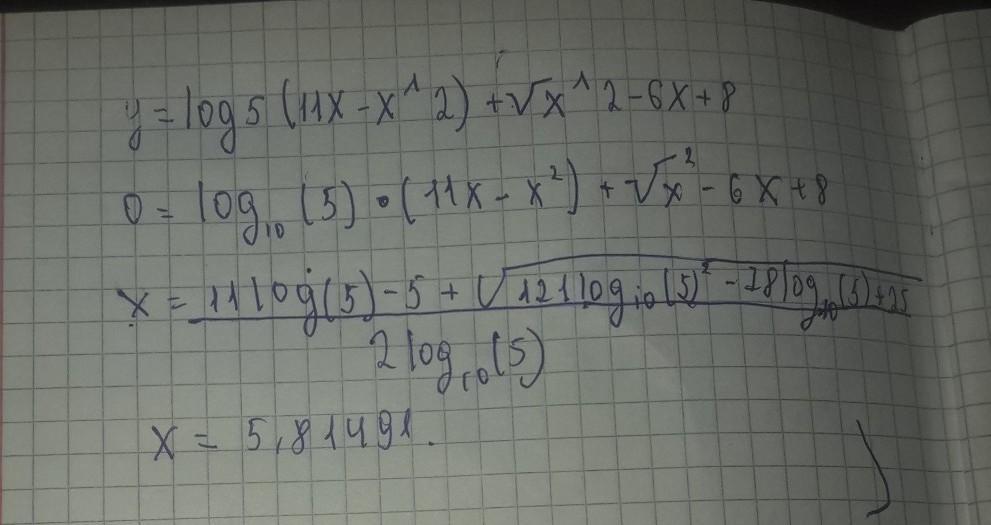 y = log5 (11x - x^2) + √x^2 - 6x + 8
0 = log₁₀ (5) • (11x - x²) + √x² - 6x + 8
x = (11 log(5) - 5 + √(121 log₁₀(5)² - 78 log₁₀(5) + 25)) / (2 log₁₀(5))
x = 5,81491.